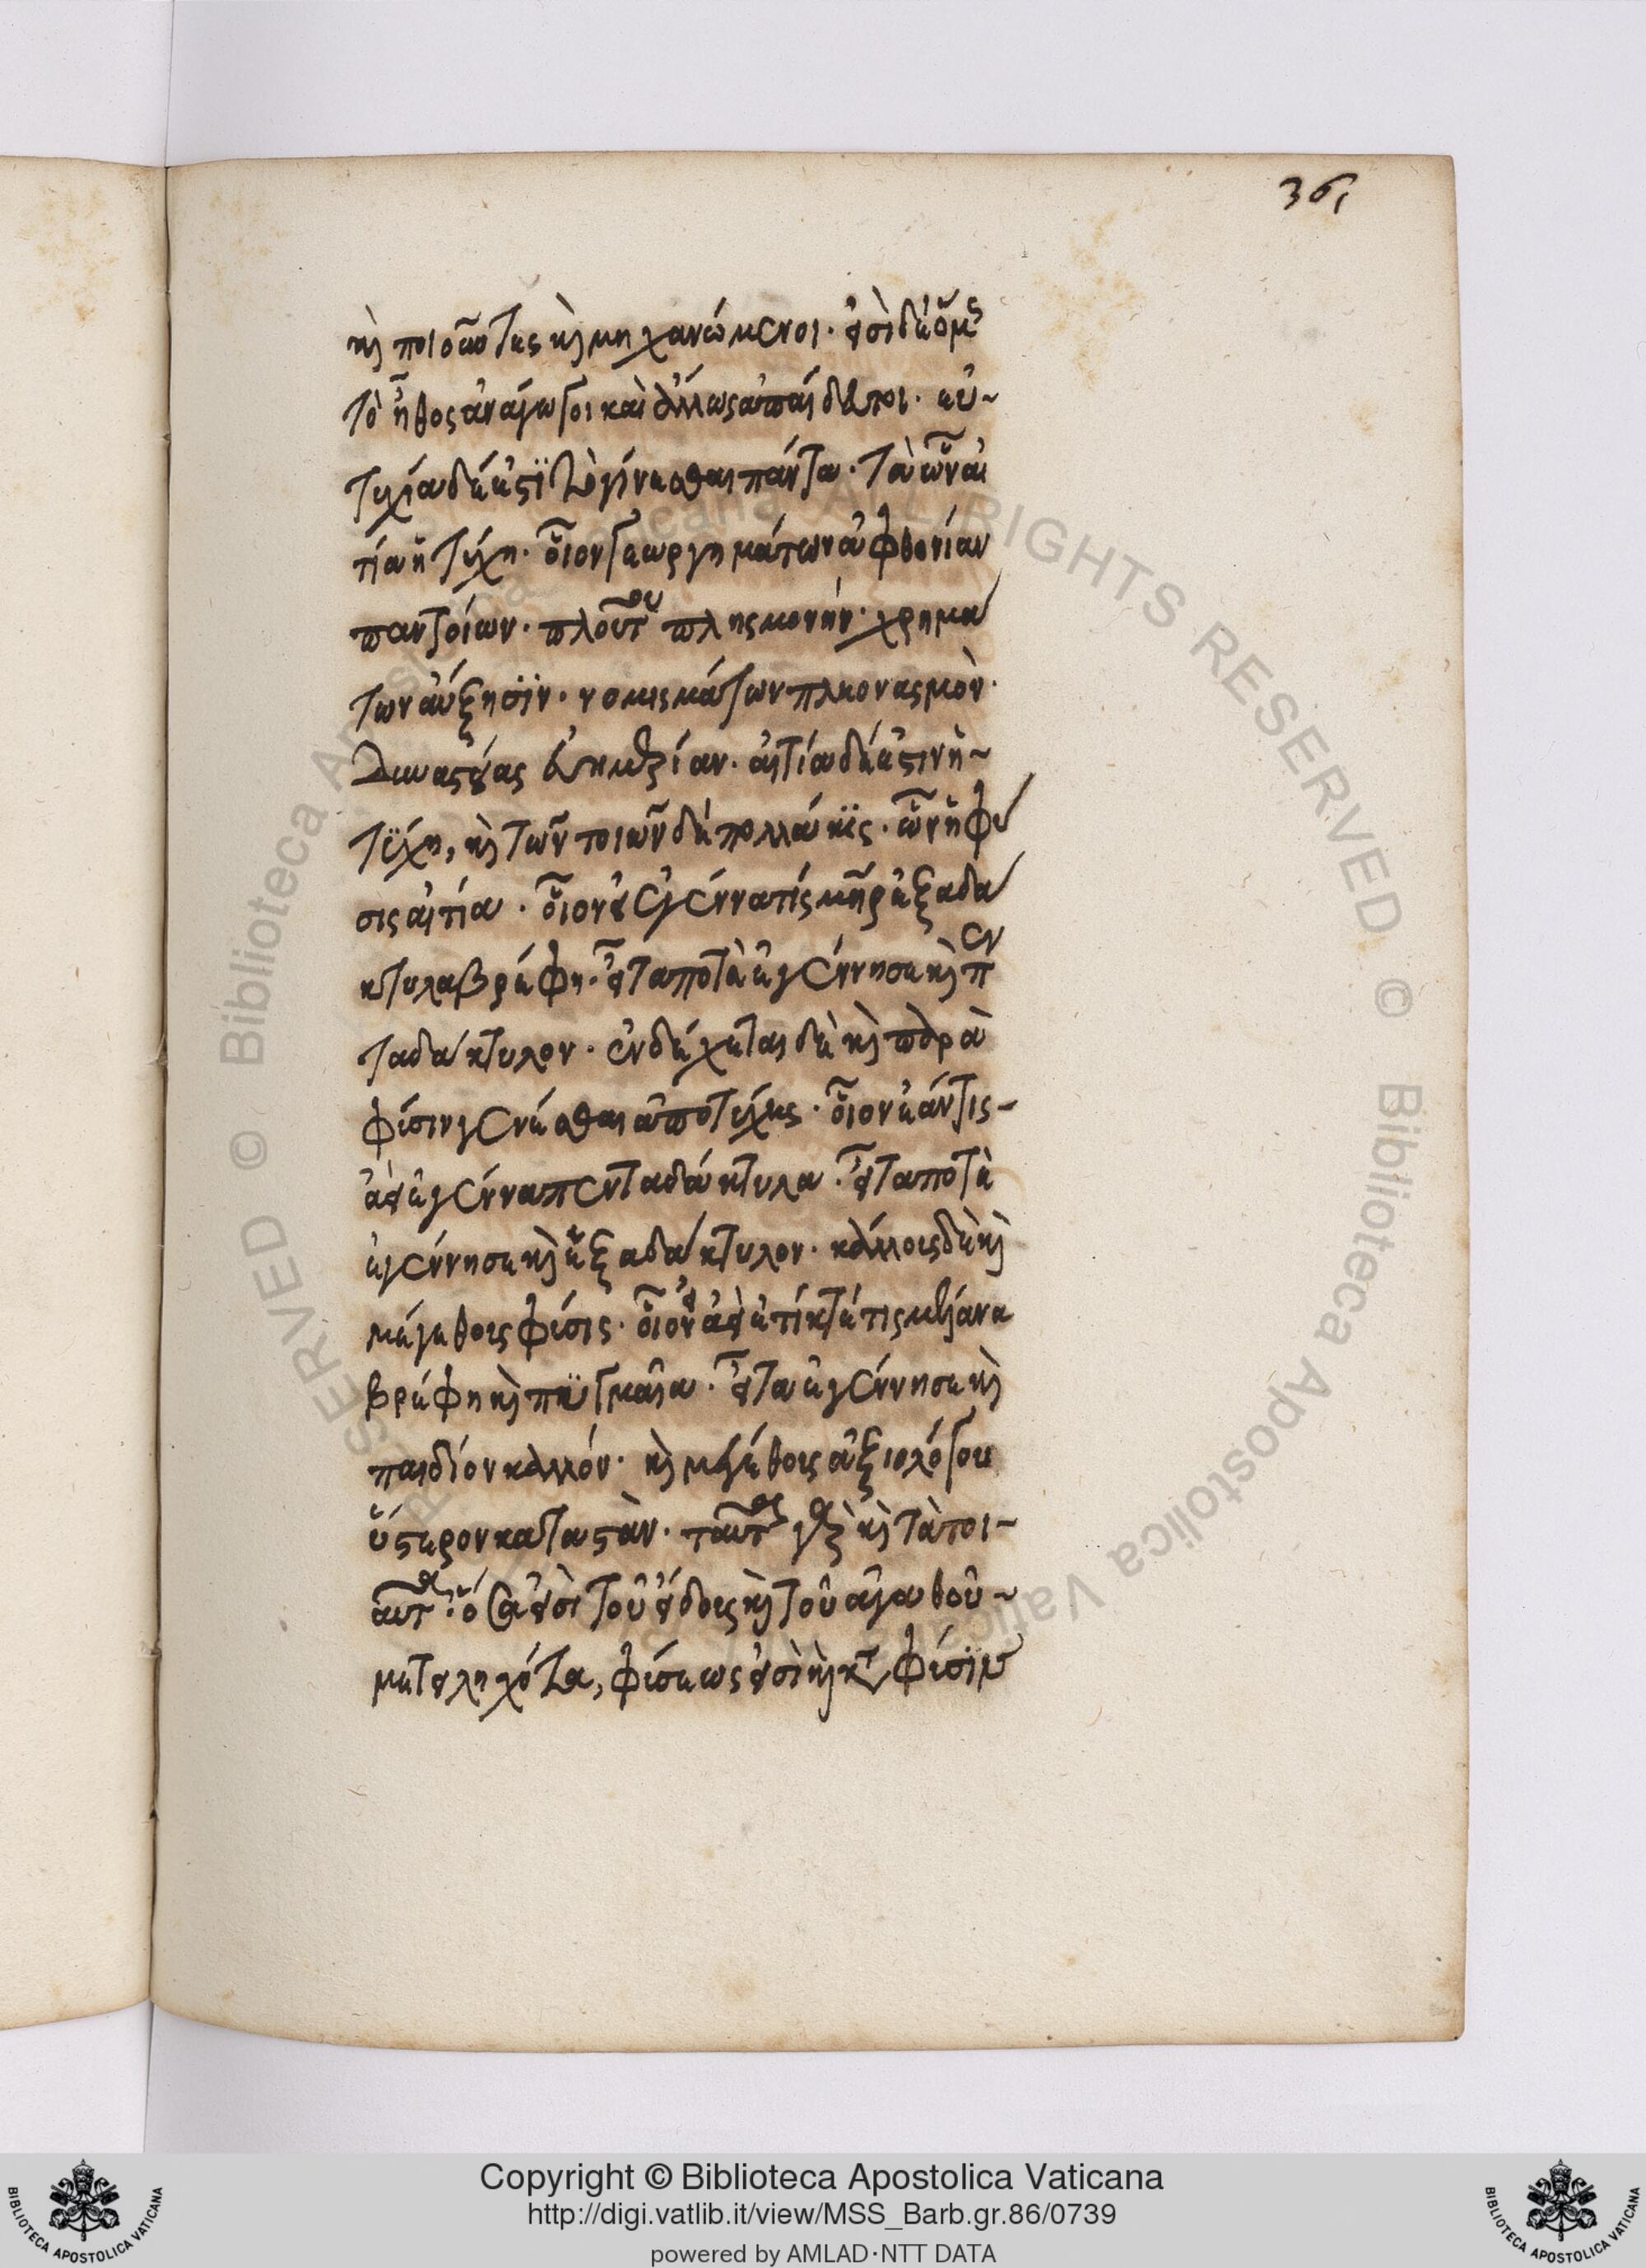 361
καὶ ποιοῦντες καὶ μηχανώμενοι. εἰσὶ δὲ ὅμως
τὸ ἦθος ἀνάγωγοι καὶ ἄλλως ἀπαίδευτοι. εὐ-
τυχία δέ ἐστϊ τὸ γίνεσθαι πάντα. τὰ ὧν αἰ
τία ἡ τύχη. οἷον γεωργημάτων ἀφθονίαν
παντοίων. πλούτου πλησμονήν. χρημά
των αὔξησϊν. νομισμάτων πλεονασμὸν.
δυναστείας ἐπικράτειαν. αἰτία δέ ἐστιν ἡ
τύχη, καὶ τῶν ποιῶν δὲ πολλάκϊς. ὧν ἡ φύ
σις αἰτία. οἷον εἰ ἐγέννα τίς μῆρ ἑξαδά
κτυλα βρέφη. εἶτα ποτὲ ἐγέννησε καὶ πεν
ταδάκτυλον. ἐνδέχεται δὲ καὶ παρὰ
φύσιν γενέσθαι ἀπὸ τύχης. οἷον ἐάν τις
ἀεὶ ἐγέννα πενταδάκτυλα. εἶτα ποτὲ
ἐγέννησε καὶ ἑξαδάκτυλον. κάλλους δὲ καὶ
μεγέθους φύσις. οἷον εἰ ἀεὶ ἔτικτέ τις
βρέφη καὶ πϋγμαῖα. εἶτα ἐγέννησε καὶ
παιδίον καλλόν. καὶ μεγέθους ἀξιολόγου
ὕστερον καταστὰν. ταῦτα γὰρ καὶ τὰ τοι-
αῦτα. ὅσα εἰσὶ τοῦ εἴδους καὶ τοῦ ἀγαθοῦ
μετειληχότα, φύσεώς εἰσὶ καὶ κατὰ φύσϊν
Copyright © Biblioteca Apostolica Vaticana
http://digi.vatlib.it/view/MSS_Barb.gr.86/0739
powered by AMLAD·NTT DATA
BIBLIOTECA APOSTOLICA VATICANA
BIBLIOTECA APOSTOLICA VATICANA
Biblioteca Apostolica Vaticana ALL RIGHTS RESERVED © Biblioteca Apostolica Vaticana ALL RIGHTS RESERVED ©